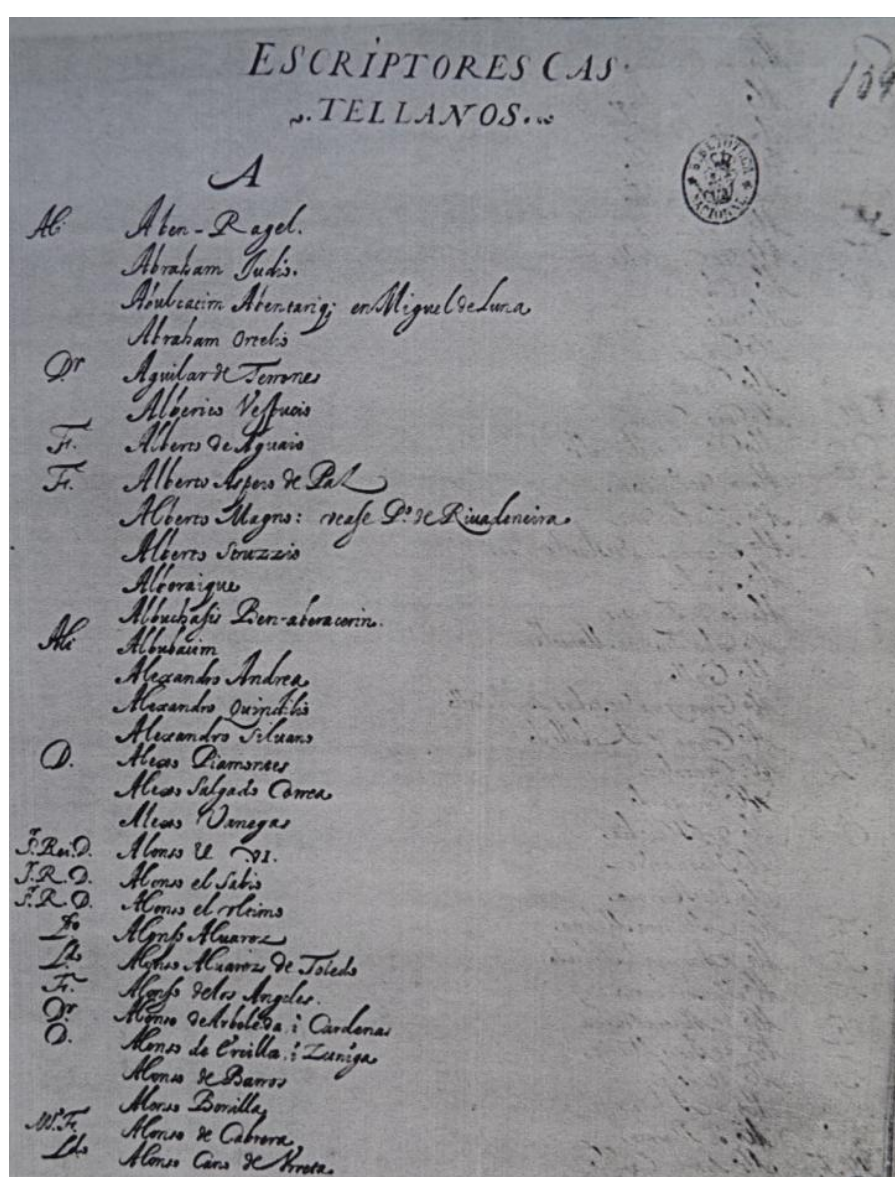 ESCRIPTORES CAS
TELLANOS.
104
BIBLIOTECA NACIONAL
A
Ali Aben-Ragel.
Abraham Judio.
Abulcacim Abentariq; en Miguel de Luna
Abraham Ortelio
Dr Aguilar de Terrones
Alberico Vespucio
Fr. Alberto de Aguaio
Fr. Alberto Aspero de Paz
Alberto Magno: vease Po. de Riuadeneira
Alberto Struzzio
Alboraique
Albuchasis Ben-aberacerin.
Ali Albubacim
Alexandro Andrea
Alexandro Quindilio
Alexandro Siluano
D. Alexo Piamontes
Alexo Salgado Correa
Alexo Vanegas
S. Rei. D. Alonso el VI.
S. R. D. Alonso el Sabio
S. R. D. Alonso el vltimo
Ldo Alonso Aluarez
Ldo Alonso Aluarez de Toledo
Fr. Alonso de los Angeles.
Dr Alonso de Arboleda i Cardenas
D. Alonso de Ercilla i Zuniga
Alonso de Barros
Alonso Bonilla
Mo. Fr. Alonso de Cabrera
Ldo Alonso Cano de Vrreta